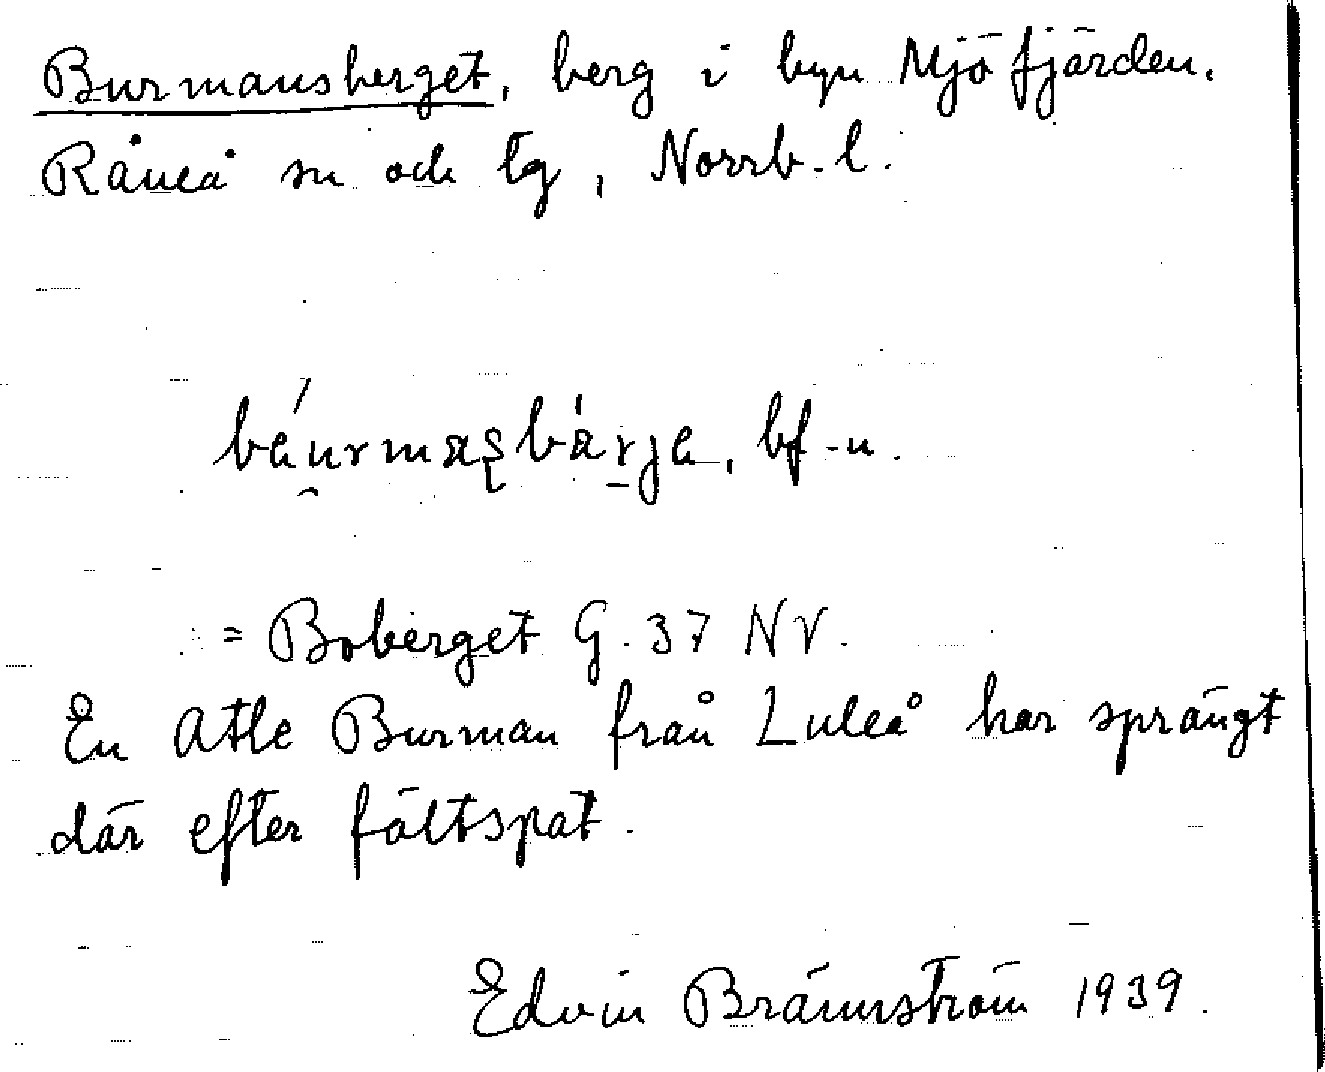 Burmansberget, berg i byn Mjöfjärden.
Råneå sn och tg, Norrb. l.
báurmasbärja, bf -n.
= Boberget G. 37 NV.
En Atle Burman från Luleå har sprängt
där efter fältspat.
Edvin Brännström 1939.